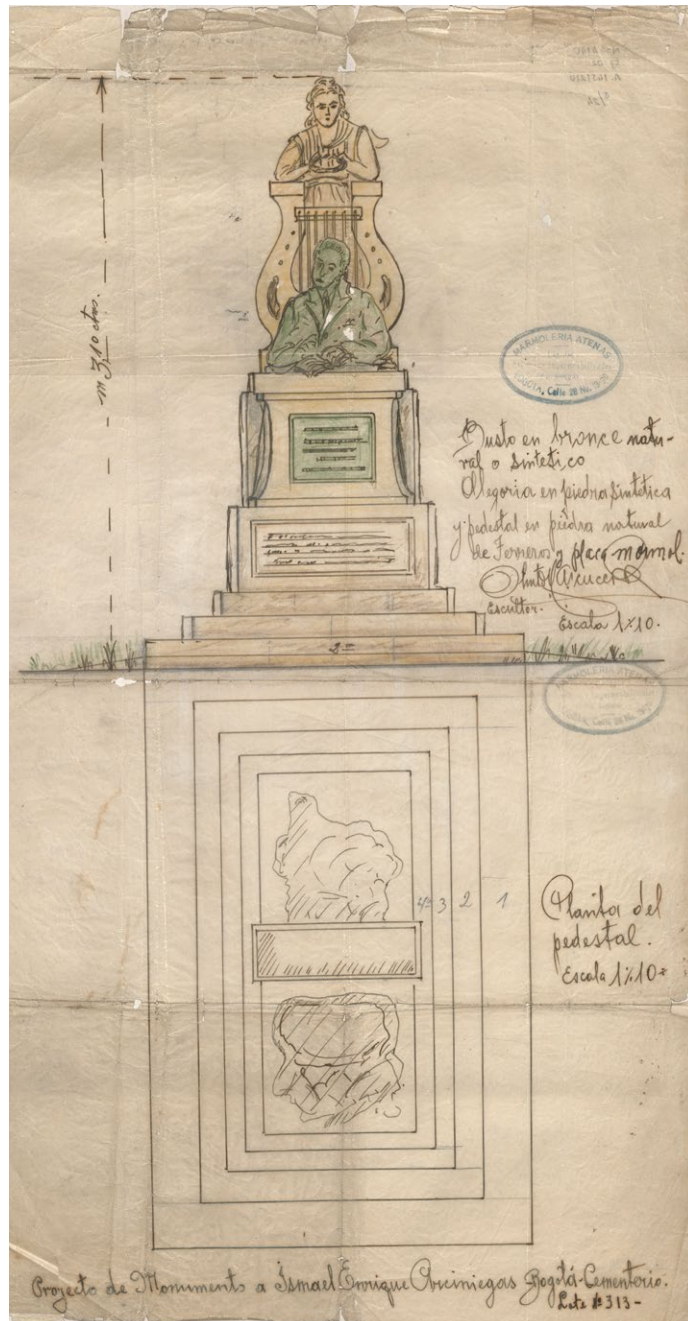 m 3,10 ctms.
MARMOLERIA ATENAS
BOGOTA, Calle 28 No. 
Busto en bronce natu-
ral o sintetico
Alegoria en piedra sintetica
y pedestal en piedra natural
de Terreros y placa marmol.
Escultor.
Escala 1x10.
2 m
MARMOLERIA ATENAS
4 3 2 1
Planta del
pedestal.
Escala 1%10=
Proyecto de Monumento a Ismael Enrique Arciniegas Bogotá-Cementerio.
Lote # 313-